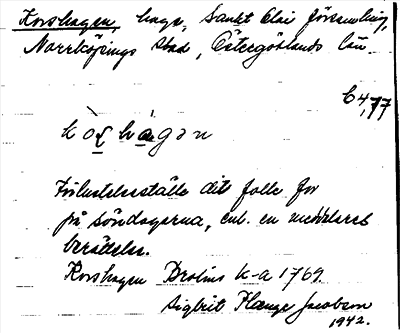 Korshagen, hage, Sankt Olai församling,
Norrköpings stad, Östergötlands län.
64,77
kòs̱hagən
Förlustelseställe dit folk for
på söndagarna, enl. en meddelares
berättelse.
Korshagen Brolins k-a 1769.
Sigbrit Plænge Jacobson
1942.